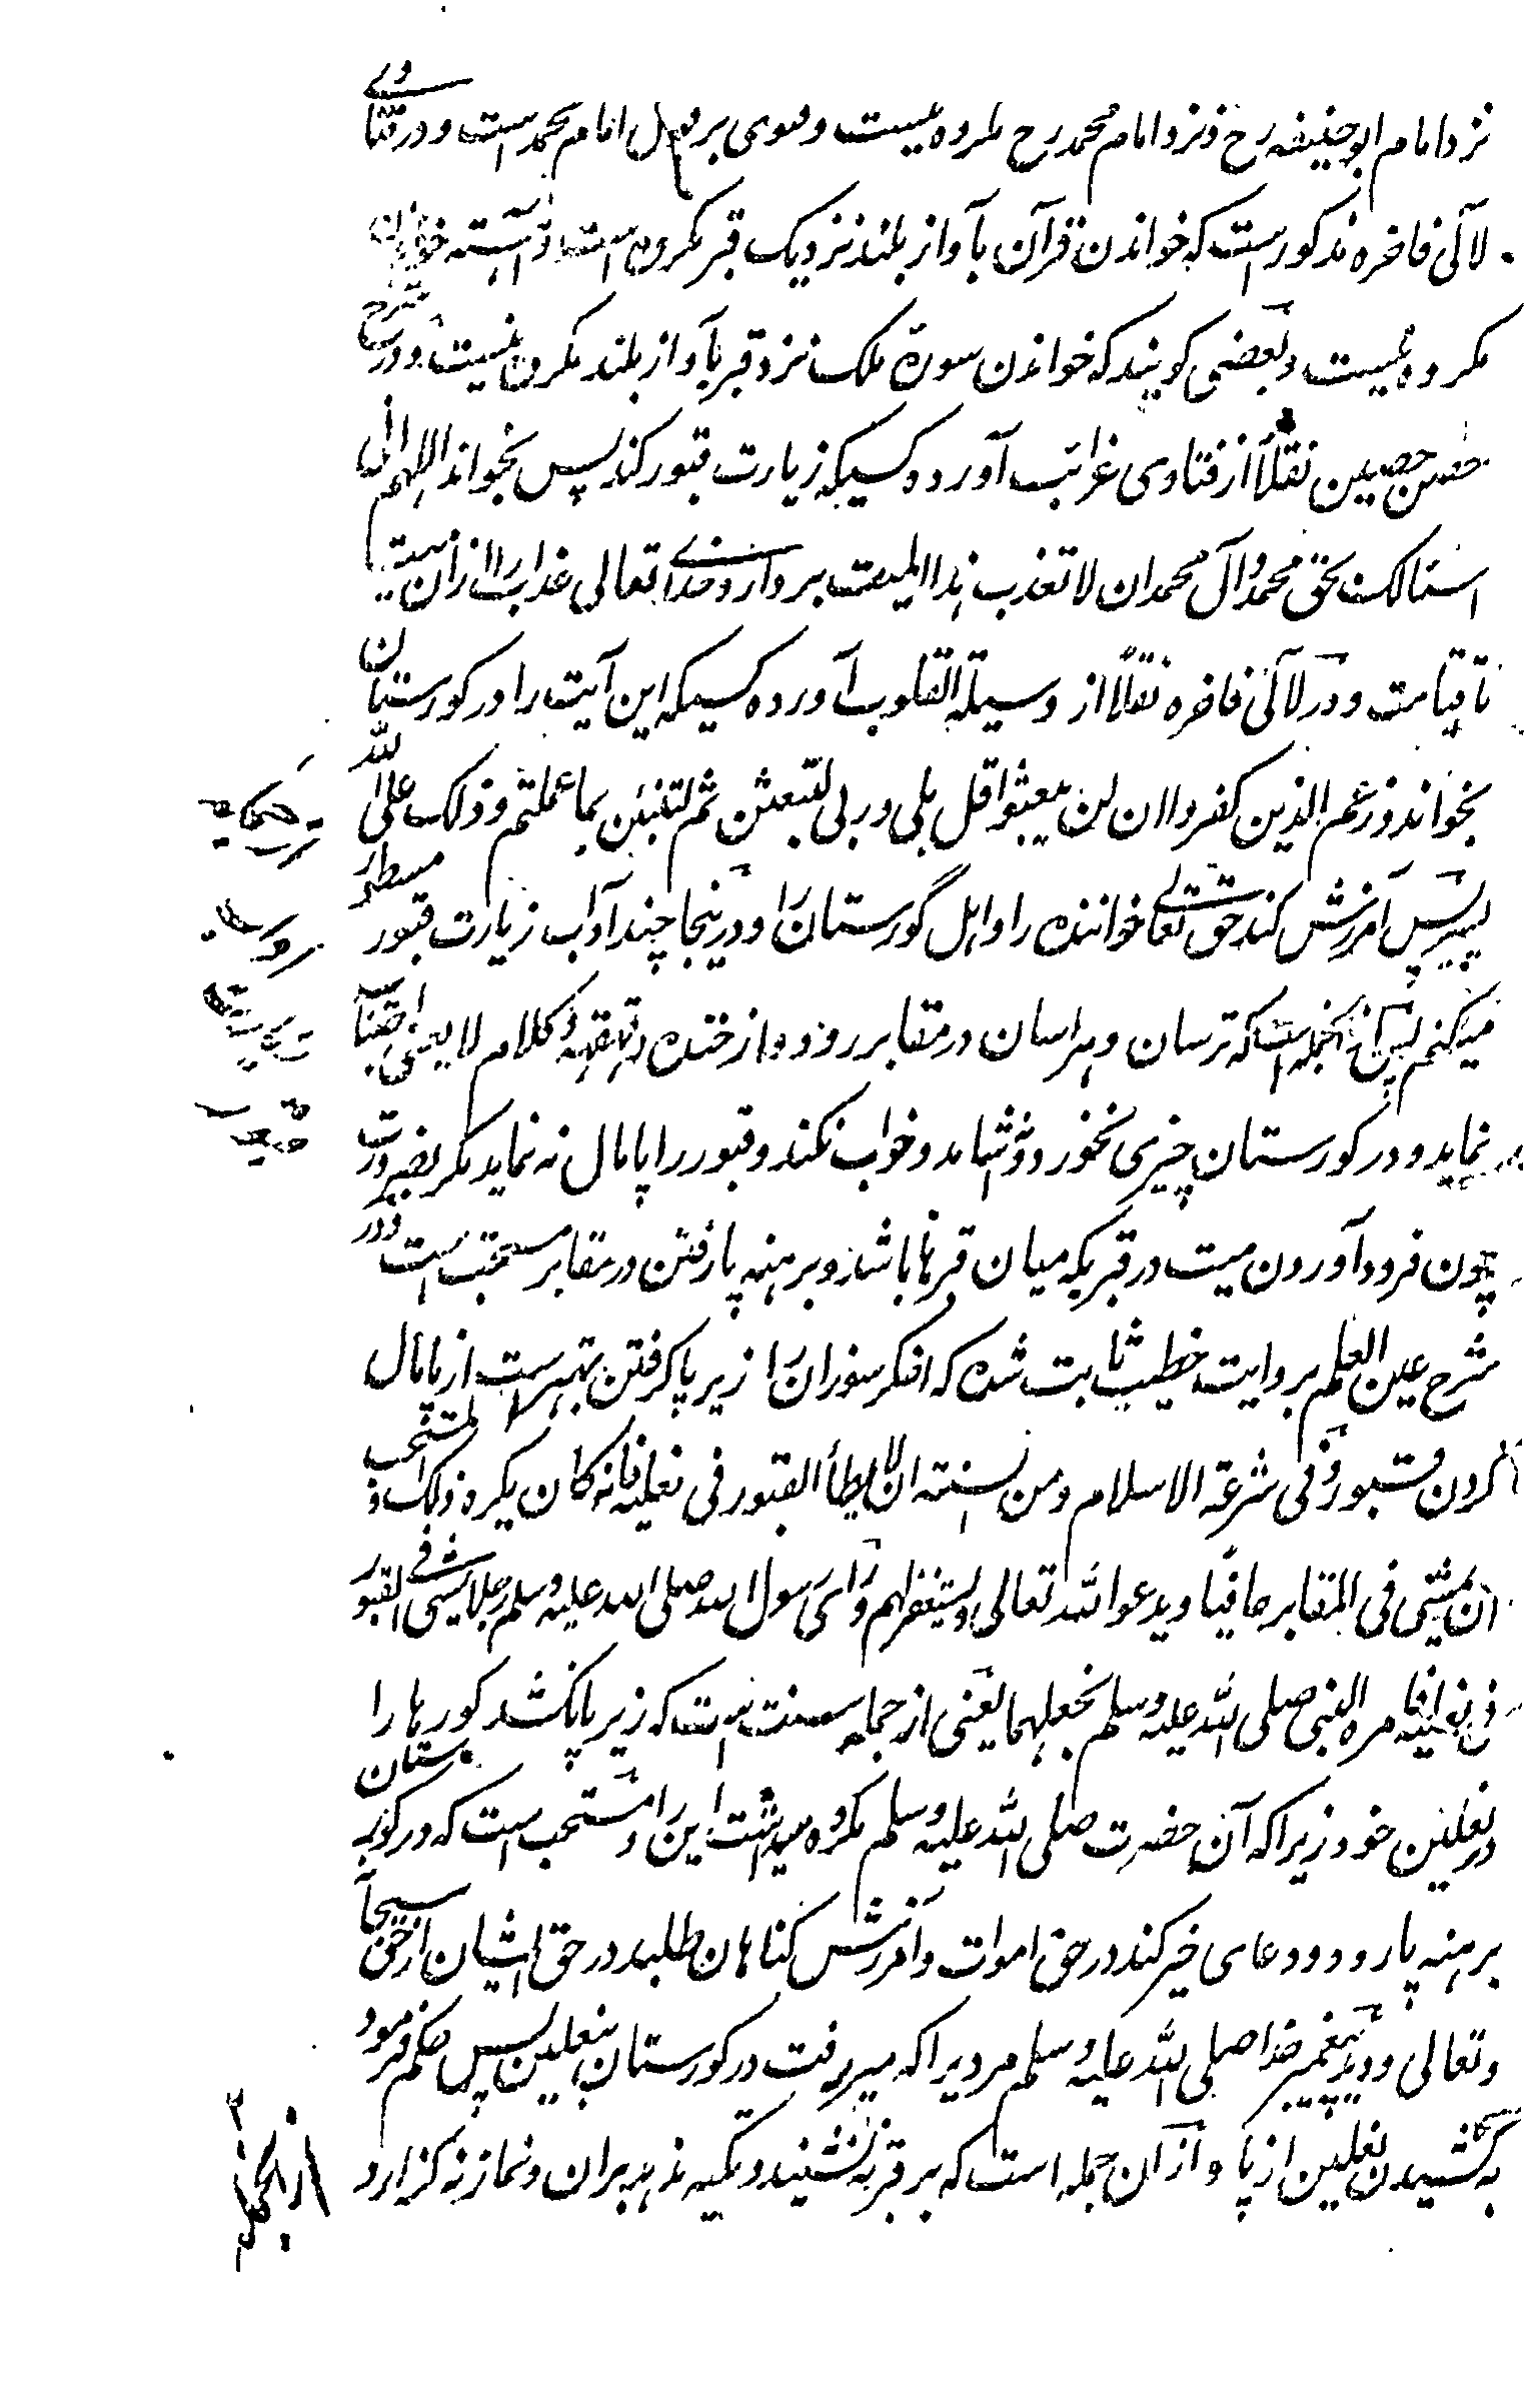 نزد امام ابوحنیفه رح و نزد امام محمد رح مکروه نیست و فتوی بر قول امام محمد است و در فتاوے
لآلی فاخره مذکور است که خواندن قرآن بآواز بلند نزدیک قبر مکروه است و آهسته خواندن
مکروه نیست و بعضی گویند که خواندن سورة ملک نزد قبر بآواز بلند مکروه نیست و در شرح
حصن حصین نقلاً از فتاوی غرائب آورده کسیکه زیارت قبور کند پس بخواند اللهم انی
اسئالک بحق محمد و آل محمد ان لا تعذب هذا المیت بردارد خدائے تعالی عذاب را از ان میت
تا قیامت و در لآلی فاخره نقلاً از وسیلة القلوب آورده کسیکه این آیت را در کورستان
بخواند زعم الذین کفروا ان لن یبعثوا قل بلی و ربی لتبعثن ثم لتنبئن بما عملتم و ذلک علی الله
یسیر پس آمرزش کند حق تعالے خواننده را و اهل گورستان را و درینجا چند آداب زیارت قبور مسطور
میکنم پس ازانجمله است که ترسان و هراسان در مقابر رود و از خنده و قهقهه و کلام لا یعنی اجتناب
نماید و در کورستان چیزی نخورد و نوشاید و خواب نکند و قبور را پامال نه نماید مکر بضرورت
چون فرود آوردن میت در قبریکه میان قبرها باشد و برهنه پا رفتن در مقابر مستحب است و در
شرح عین العلم بروایت خطیب ثابت شده که افکر سوزان را زیر پا کرفتن بهتر است از پامال
کردن قبور و فی شرعة الاسلام و من السنته ان لا یطأ القبور فی نعلیه فانه کان یکره ذلک و المستحب
ان یمشی فی المقابر حافیا و یدعو الله تعالی و یستغفر لهم و رای رسول الله صلی الله علیه وسلم رجلا یمشی فی القبور
فی نعلیه فامره النبی صلی الله علیه وسلم بخعلهما یعنی از جمله سنت است که زیر پا نکشد کورها را
در نعلین خود زیرا که آن حضرت صلی الله علیه وسلم مکروه میداشت این را و مستحب است که در کورستان
برهنه پا رود و دعای خیر کند در حق اموات و آمرزش کناهان طلبد در حق ایشان از حق سبحانه
و تعالی و دید پیغمبر خدا صلی الله علیه وسلم مردیرا که میرفت در کورستان بنعلین پس حکم فرمود
به کشیدن نعلین از پا و از ان جمله است که بر قبر نه نشیند و تکیه ندهد بران و نماز نه کزارد
ازانجمله